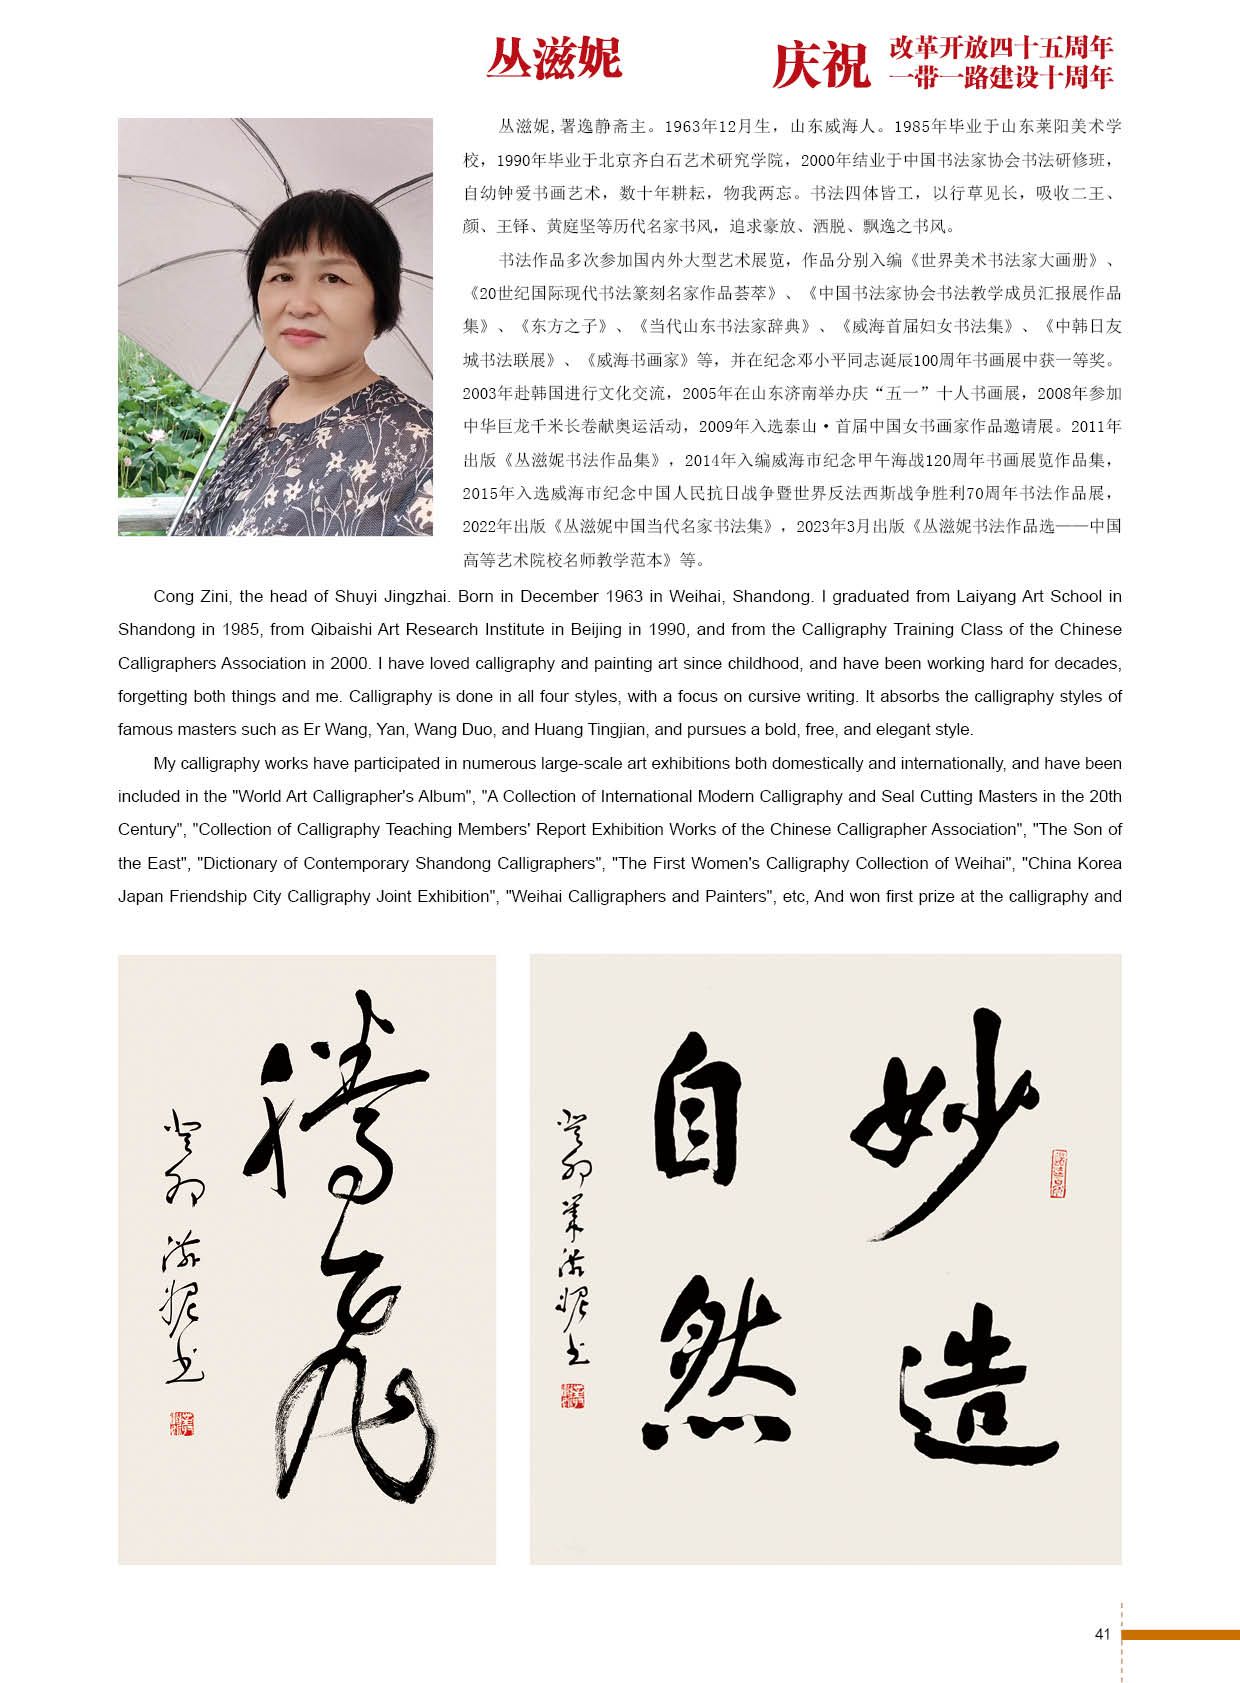 丛滋妮
庆祝
改革开放四十五周年
一带一路建设十周年
丛滋妮,署逸静斋主。1963年12月生，山东威海人。1985年毕业于山东莱阳美术学
校，1990年毕业于北京齐白石艺术研究学院，2000年结业于中国书法家协会书法研修班，
自幼钟爱书画艺术，数十年耕耘，物我两忘。书法四体皆工，以行草见长，吸收二王、
颜、王铎、黄庭坚等历代名家书风，追求豪放、洒脱、飘逸之书风。
书法作品多次参加国内外大型艺术展览，作品分别入编《世界美术书法家大画册》、
《20世纪国际现代书法篆刻名家作品荟萃》、《中国书法家协会书法教学成员汇报展作品
集》、《东方之子》、《当代山东书法家辞典》、《威海首届妇女书法集》、《中韩日友
城书法联展》、《威海书画家》等，并在纪念邓小平同志诞辰100周年书画展中获一等奖。
2003年赴韩国进行文化交流，2005年在山东济南举办庆“五一”十人书画展，2008年参加
中华巨龙千米长卷献奥运活动，2009年入选泰山·首届中国女书画家作品邀请展。2011年
出版《丛滋妮书法作品集》，2014年入编威海市纪念甲午海战120周年书画展览作品集，
2015年入选威海市纪念中国人民抗日战争暨世界反法西斯战争胜利70周年书法作品展，
2022年出版《丛滋妮中国当代名家书法集》，2023年3月出版《丛滋妮书法作品选——中国
高等艺术院校名师教学范本》等。
Cong Zini, the head of Shuyi Jingzhai. Born in December 1963 in Weihai, Shandong. I graduated from Laiyang Art School in
Shandong in 1985, from Qibaishi Art Research Institute in Beijing in 1990, and from the Calligraphy Training Class of the Chinese
Calligraphers Association in 2000. I have loved calligraphy and painting art since childhood, and have been working hard for decades,
forgetting both things and me. Calligraphy is done in all four styles, with a focus on cursive writing. It absorbs the calligraphy styles of
famous masters such as Er Wang, Yan, Wang Duo, and Huang Tingjian, and pursues a bold, free, and elegant style.
My calligraphy works have participated in numerous large-scale art exhibitions both domestically and internationally, and have been
included in the "World Art Calligrapher's Album", "A Collection of International Modern Calligraphy and Seal Cutting Masters in the 20th
Century", "Collection of Calligraphy Teaching Members' Report Exhibition Works of the Chinese Calligrapher Association", "The Son of
the East", "Dictionary of Contemporary Shandong Calligraphers", "The First Women's Calligraphy Collection of Weihai", "China Korea
Japan Friendship City Calligraphy Joint Exhibition", "Weihai Calligraphers and Painters", etc, And won first prize at the calligraphy and
腾飞
癸卯 滋妮书
妙造
自然
癸卯 滋妮书
41